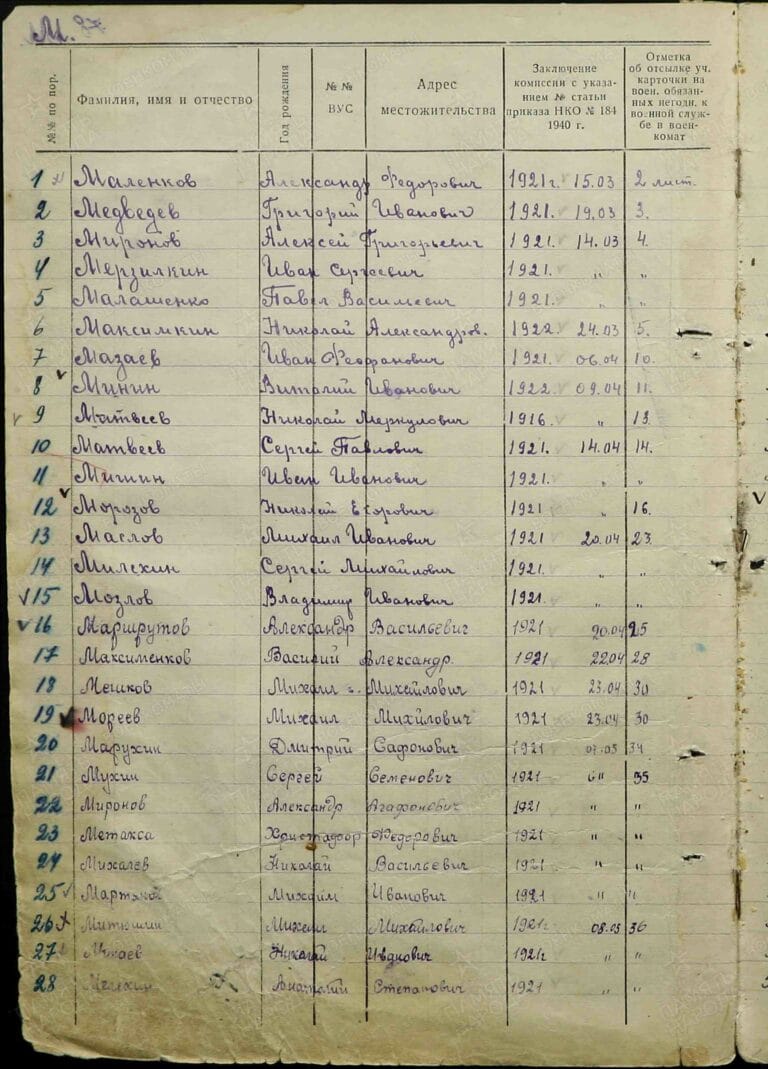 М.
№№ по пор.
Фамилия, имя и отчество
Год рождения
№ №
ВУС
Адрес
местожительства
Заключение
комиссии с указа-
нием № статьи
приказа НКО № 184
1940 г.
Отметка
об отсылке уч.
карточки на
воен. обязан-
ных негодн. к
военной служ-
бе в воен-
комат
1 Маленков Александр Федорович 1921г. 15.03 2 лист.
2 Медведев Григорий Иванович 1921. 19.03 3.
3 Миронов Алексей Григорьевич 1921. 14.03 4.
4 Мерзилкин Иван Сергеевич 1921. " "
5 Малашенко Павел Васильевич 1921. " "
6 Максимкин Николай Александров. 1922. 24.03 5.
7 Мазаев Иван Феофанович 1921. 06.04 10.
8 Минин Виталий Иванович 1922. 09.04 11.
9 Матвеев Николай Меркулович 1916. " 13.
10 Матвеев Сергей Павлович 1921. 14.04 14.
11 Мишин Иван Иванович 1921. " "
12 Морозов Николай Егорович 1921 " 16.
13 Маслов Михаил Иванович 1921 20.04 23.
14 Милехин Сергей Михайлович 1921. " "
15 Мозлов Владимир Иванович 1921. " "
16 Маршрутов Александр Васильевич 1921 20.04 25
17 Максименков Василий Александр. 1921 22.04 28
18 Мешков Михаил Михайлович 1921 23.04 30
19 Мореев Михаил Михйлович 1921 23.04 30
20 Марухин Дмитрий Сафонович 1921 07.05 34
21 Мухин Сергей Семенович 1921 35
22 Миронов Александр Агафонович 1921 " "
23 Метакса Христафор Федорович 1921 " "
24 Михалев Николай Васильевич 1921 " "
25 Михаил Иванович 1921 " "
26 Митюшин Михаил Михайлович 1921г 08.05 36
27 Николай Иванович 1921г " "
28 Мелехин Анатолий Степанович 1921 " "